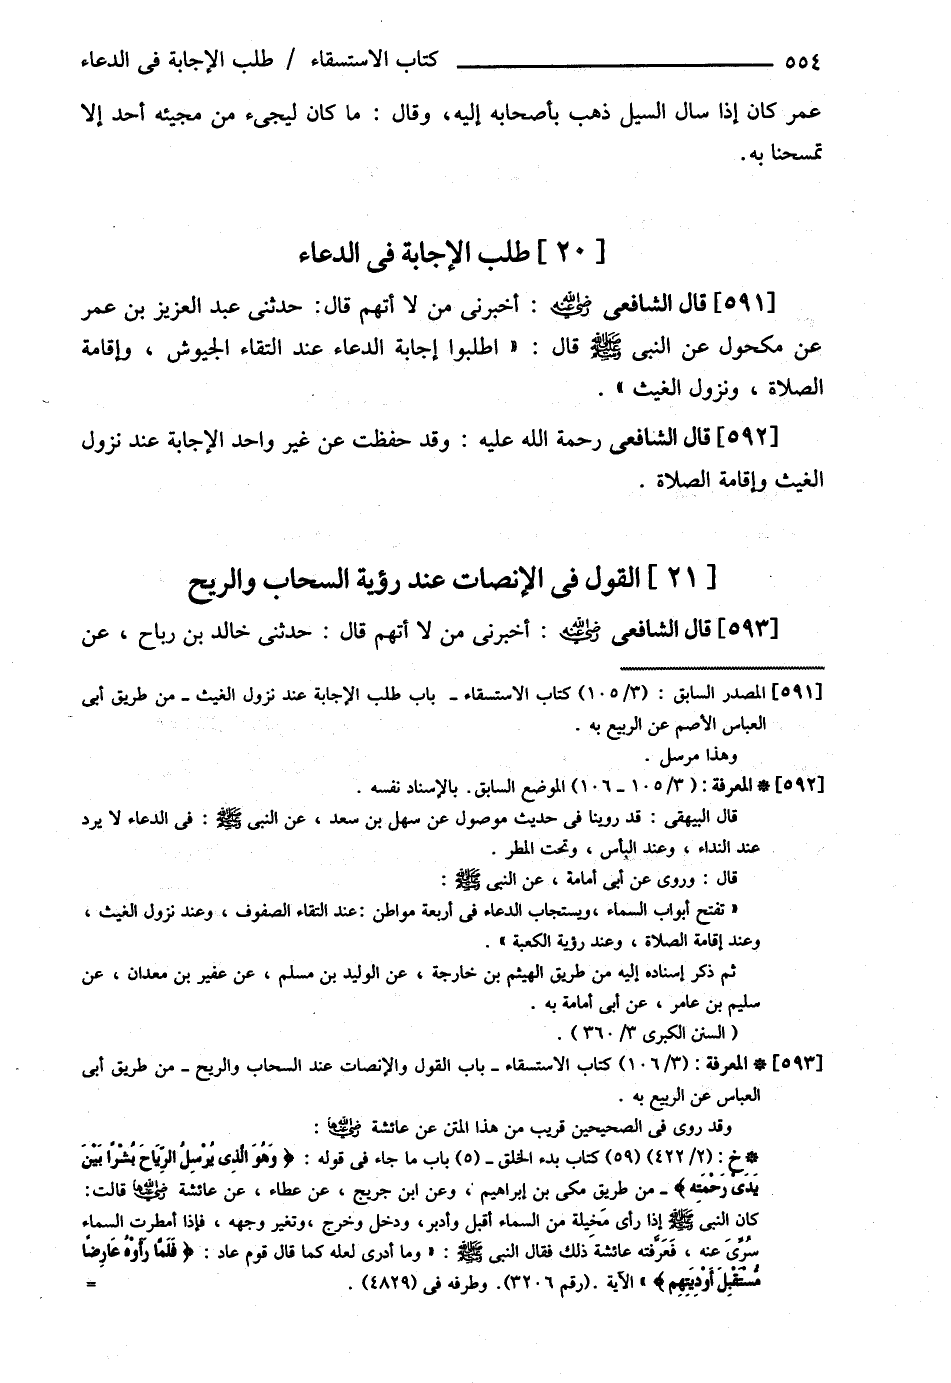 ٥٥٤ ــــــــــ كتاب الاستسقاء / طلب الإجابة فى الدعاء
عمر كان إذا سال السيل ذهب بأصحابه إليه، وقال : ما كان ليجىء من مجيئه أحد إلا
تمسحنا به.
[ ٢٠ ] طلب الإجابة فى الدعاء
[٥٩١] قال الشافعى رضي الله عنه : أخبرنى من لا أتهم قال: حدثنى عبد العزيز بن عمر
عن مكحول عن النبى ﷺ قال : « اطلبوا إجابة الدعاء عند التقاء الجيوش ، وإقامة
الصلاة ، ونزول الغيث » .
[٥٩٢] قال الشافعى رحمة الله عليه : وقد حفظت عن غير واحد الإجابة عند نزول
الغيث وإقامة الصلاة .
[ ٢١ ] القول فى الإنصات عند رؤية السحاب والريح
[٥٩٣] قال الشافعى رضي الله عنه : أخبرنى من لا أتهم قال : حدثنى خالد بن رباح ، عن
[٥٩١] المصدر السابق : (٣/ ١٠٥) كتاب الاستسقاء ــ باب طلب الإجابة عند نزول الغيث ــ من طريق أبى
العباس الأصم عن الربيع به .
وهذا مرسل .
[٥٩٢] * المعرفة : (٣/ ١٠٥ ــ ١٠٦) الموضع السابق. بالإسناد نفسه .
قال البيهقى : قد روينا فى حديث موصول عن سهل بن سعد ، عن النبى ﷺ : فى الدعاء لا يرد
عند النداء ، وعند البأس ، وتحت المطر .
قال : وروى عن أبى أمامة ، عن النبى ﷺ :
« تفتح أبواب السماء ،ويستجاب الدعاء فى أربعة مواطن :عند التقاء الصفوف ، وعند نزول الغيث ،
وعند إقامة الصلاة ، وعند رؤية الكعبة » .
ثم ذكر إسناده إليه من طريق الهيثم بن خارجة ، عن الوليد بن مسلم ، عن عفير بن معدان ، عن
سليم بن عامر ، عن أبى أمامة به .
( السنن الكبرى ٣/ ٣٦٠ ) .
[٥٩٣] * المعرفة : (٣/ ١٠٦) كتاب الاستسقاء ــ باب القول والإنصات عند السحاب والريح ــ من طريق أبى
العباس عن الربيع به .
وقد روى فى الصحيحين قريب من هذا المتن عن عائشة رضي الله عنها :
* خ : (٢/ ٤٢٢) (٥٩) كتاب بدء الخلق ــ (٥) باب ما جاء فى قوله : ﴿ وَهُوَ الَّذِى يُرْسِلُ الرِّيَاحَ بُشْرًا بَيْنَ
يَدَىْ رَحْمَتِه ﴾ ــ من طريق مكى بن إبراهيم ، وعن ابن جريج ، عن عطاء ، عن عائشة رضي الله عنها قالت:
كان النبى ﷺ إذا رأى مَخِيلة من السماء أقبل وأدبر، ودخل وخرج ،وتغير وجهه ، فإذا أمطرت السماء
سُرِّىَ عنه ، فَعَرَّفته عائشة ذلك فقال النبى ﷺ : « وما أدرى لعله كما قال قوم عاد : ﴿ فَلَمَّا رَأَوْهُ عَارِضًا
مُّسْتَقْبِلَ أَوْدِيَتِهِم ﴾ » الآية .(رقم ٣٢٠٦). وطرفه فى (٤٨٢٩) . =